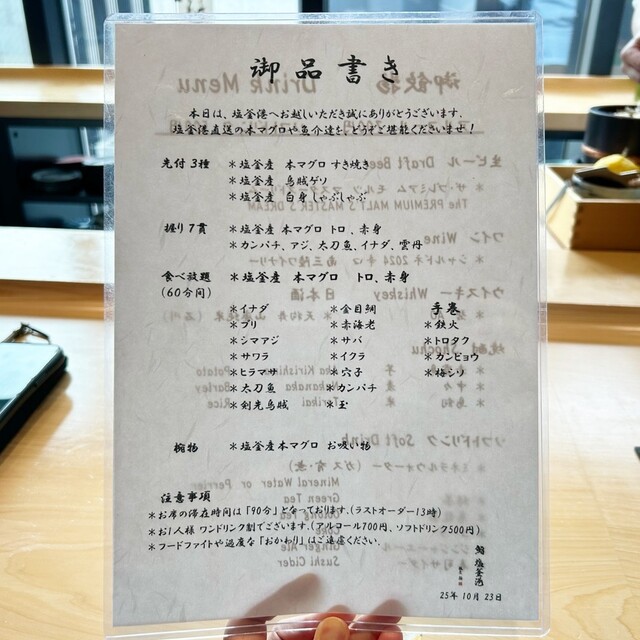 御品書き
本日は、塩釜港へお越しいただき誠にありがとうございます。
塩釜港直送の本マグロや魚介達を、どうぞご堪能くださいませ！
先付3種 ＊塩釜産 本マグロ すき焼き
＊塩釜産 烏賊ゲソ
＊塩釜産 白身しゃぶしゃぶ
握り7貫 ＊塩釜産 本マグロ トロ、赤身
＊カンパチ、アジ、太刀魚、イナダ、雲丹
食べ放題 ＊塩釜産 本マグロ トロ、赤身
(60分間)
＊イナダ ＊金目鯛 手巻
＊ブリ ＊赤海老 ＊鉄火
＊シマアジ ＊サバ ＊トロタク
＊サワラ ＊イクラ ＊カンピョウ
＊ヒラマサ ＊穴子 ＊梅シソ
＊太刀魚 ＊カンパチ
＊剣先烏賊 ＊玉
椀物 ＊塩釜産本マグロ お吸い物
注意事項
＊お席の滞在時間は「90分」となっております。(ラストオーダー13時)
＊お1人様 ワンドリンク制でございます。(アルコール700円、ソフトドリンク500円)
＊フードファイトや過度な「おかわり」はご遠慮ください。
鮨 塩釜港
25年 10月 23日